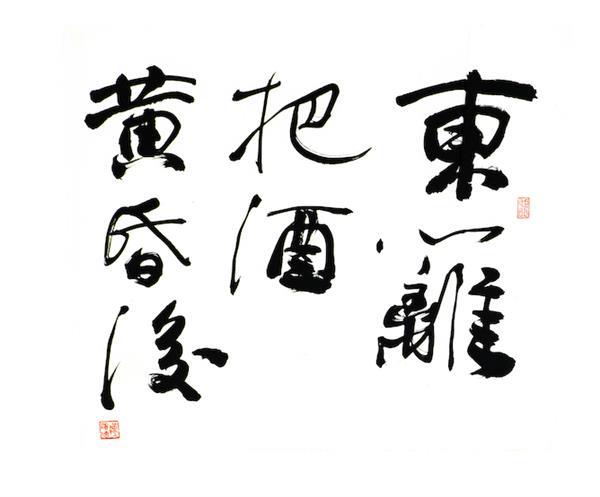 東籬
把酒
黄昏後